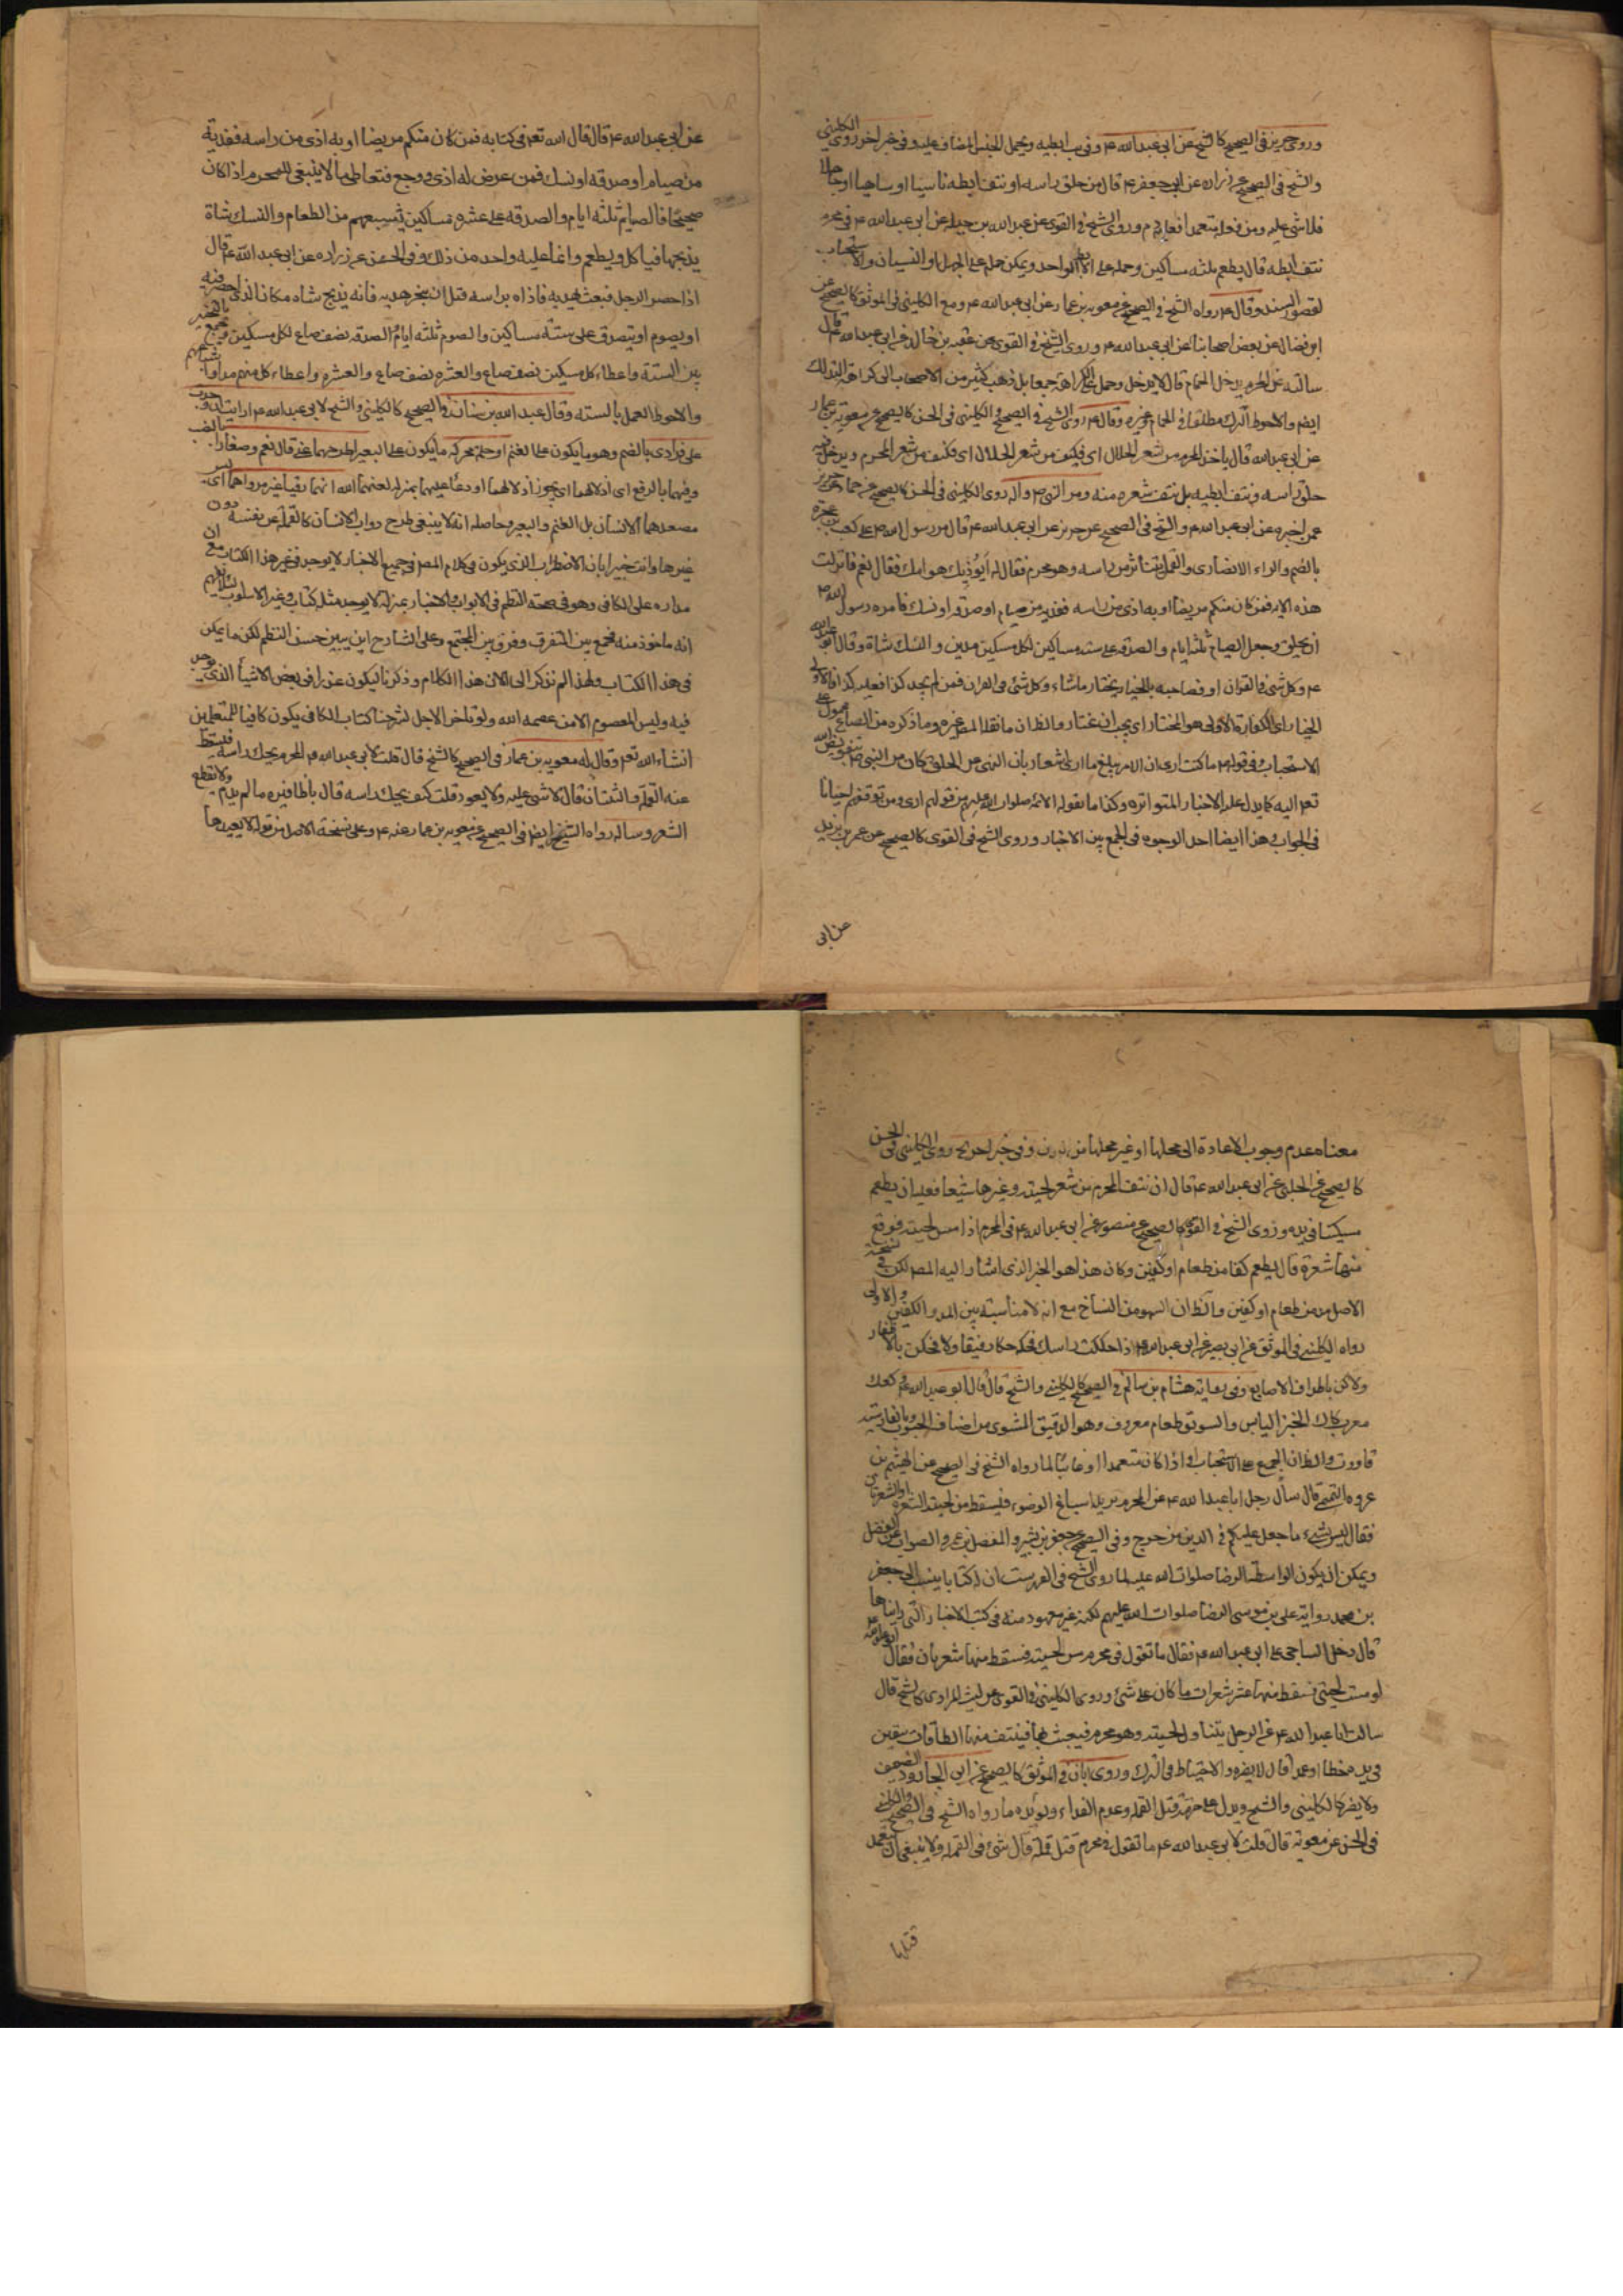 وروى حريز فى الصحيح كالشيخ عن ابى عبد الله ع وفى ابطيه ويحمل الجنس المضاف عليه وفى خبر اخر روى الكلينى
والشيخ فى الصحيح عن زراره عن ابى جعفر ع قال من حلق راسه او نتف ابطه ناسيا او ساهيا او جاهلا
فلا شئ عليه ومن فعله متعمدا فعليه دم وروى الشيخ فى القوى عن عبد الله بن جبله عن ابى عبد الله ع فى محرم
نتف ابطه قال يطعم ثلثه مساكين وحمل على الابط الواحد ويمكن حمله على الجهل او النسيان والاستحباب
لقصور السند وقال ع رواه الشيخ فى الصحيح عن معويه بن عمار عن ابى عبد الله ع ومع الكلينى فى الموثق كالصحيح عن
ابن فضال عن بعض اصحابنا عن ابى عبد الله ع وروى الشيخ فى القوى عن عقبه بن خالد عن ابى عبد الله ع قال
سالته عن المحرم يدخل الحمام قال لا يدخل وحمل على الكراهة جمعا بل ذهب كثير من الاصحاب الى كراهة التدلك
ايضا والاحوط الترك مطلقا فى الحمام وغيره وقال ع روى الشيخ فى الصحيح والكلينى فى الحسن كالصحيح عن معويه بن عمار
عن ابى عبد الله قال ياخذ المحرم من شعر الحلال اى فكيف من شعر المحرم ويدخل فيه
حلق راسه ونتف ابطيه بل نتف شعره منه ومر النبى ص واله روى الكلينى فى الحسن كالصحيح عن حماد عن حريز
عمن اخبره عن ابى عبد الله ع والشيخ فى الصحيح عن حريز عن ابى عبد الله ع قال مر رسول الله ص على كعب بن عجره
بالضم والراء الانصارى والقمل يتناثر من راسه وهو محرم فقال له ايؤذيك هوامك فقال نعم فانزلت
هذه الايه فمن كان منكم مريضا او به اذى من راسه ففديه من صيام او صدقه او نسك فامره رسول الله ص
ان يحلق وجعل الصيام ثلثه ايام والصدقه على سته مساكين لكل مسكين مدين والنسك شاة وقال ابو عبد الله
ع وكل شئ فى القران او فصاحبه بالخيار يختار ماشاء وكل شئ فى القران فمن لم يجد كذا فعليه كذا فالاولى
الخيار اى الكفارة الاولى هو المختار اى يجب ان يختار والظ ان ما نقله المص غيره وما ذكره من الصاع محمول على
الاستحباب فى قوله ص ما كنت ارى ان الامر يبلغ ما ارى اشعار بان النهى عن الحلق كان من النبى ص بتفويض الله
تعم اليه كما يدل عليه الاخبار المتواتره وكذا ما يقوله الائمه صلوات الله عليهم من قولهم ارى ومن توقفهم احيانا
فى الجواب وهذا ايضا احد الوجوه فى الجمع بين الاخبار وروى الشيخ فى القوى كالصحيح عن عمر بن يزيد
عن ابى
عن ابى عبد الله ع قال قال الله تعم فى كتابه فمن كان منكم مريضا او به اذى من راسه ففدية
من صيام او صدقه او نسك فمن عرض له اذى ووجع فتعاطى ما لا ينبغى للمحرم اذا كان
صحيحا فالصيام ثلثه ايام والصدقه على عشره مساكين يشبعهم من الطعام والنسك شاة
يذبحها فياكل ويطعم وانما عليه واحد من ذلك وفى الحسن عن زراره عن ابى عبد الله ع قال
اذا حصر الرجل فبعث بهديه فاذاه راسه قبل ان ينحر هديه فانه يذبح شاه مكان الذى احصر فيه
او يصوم او يتصدق على ستة مساكين والصوم ثلثه ايام والصدقه نصف صاع لكل مسكين
بين الستة واعطاء كل مسكين نصف صاع والعشره واعطاء كل منهم مدا
والاحوط العمل بالسته وقال عبد الله بن سنان فى الصحيح كالكلينى والشيخ لابى عبد الله ع ارايت ان وجدت
على قرادى بالضم وهو ما يكون على الغنم او حلم محركه ما يكون على البعير اطرحهما عنى قال نعم وصغارا
مصعدهما الانسان بل الغنم والبعير وحاصله انه لا ينبغى طرح دواب الانسان كالقمله عن نفسه دون
غيرها وانت خبير بان الاضطراب الذى يكون فى كلام المص فى جميع الاخبار لا يوجد فى غير هذا الكتاب مع ان
مداره على الكافى وهو فى صحة النظم فى الابواب والاخبار بمنزلة لا يوجد مثله كتاب وغير الاسلوب
انه ماخوذ منه فجمع بين المتفرق وفرق بين المجتمع وعلى الشارح ان يبين حسن النظم لكن ما يمكن
فى هذا الكتاب ولهذا لم نذكر الى الان هذا الكلام وذكرنا ليكون عذرا فى بعض الاشياء الذى يوجد
فيه وليس المعصوم الا من عصمه الله ولو تاخر الاجل لشرحنا كتاب الكافى يكون كافيا للمتعلمين
انشاء الله تعم وقال له معويه بن عمار فى الصحيح كالشيخ قال قلت لابى عبد الله ع المحرم يحك راسه فيسقط
عنه القملة والثنتان قال لا شئ عليه ولا يعود قلت كيف يحك راسه قال باظافيره ما لم يدم ولا يقطع
الشعر وساله رواه الشيخ ايضا فى الصحيح عن معويه بن عمار عنه ع وعلى نسخة الاصل من قوله لا يعيدها
معناه عدم وجوب الاعادة الى محلها او غير محلها من بدنه وفى خبر اخر روى الكلينى فى الحسن
كالصحيح عن الحلبى عن ابى عبد الله ع قال ان نتف المحرم من شعر لحيته وغيرها شيئا فعليه ان يطعم
مسكينا فى يده وروى الشيخ فى القوى كالصحيح عن منصور عن ابى عبد الله ع فى المحرم اذا مس لحيته فوقع
منها شعرة قال يطعم كفا من طعام او كفين وكان هذا هو الخبر الذى اشار اليه المص لكن فى نسخة
الاصل مد من طعام او كفين والظ ان السهو من النساخ مع انه لا مناسبة بين المد والكفين والاولى
رواه الكلينى فى الموثق عن ابى بصير عن ابى عبد الله ع اذا حككت راسك فحكه حكا رفيقا ولا تحكن بالاظفار
ولكن باطراف الاصابع وفى رواية هشام بن سالم فى الصحيح كالكلينى والشيخ قال قال ابو عبد الله ع وكعك
معرب كاك الخبز اليابس والسويق طعام معروف وهو الدقيق المشوى من اصناف الحبوب
عروه التميمى قال سال رجل ابا عبد الله ع عن المحرم يريد اسباغ الوضوء فيسقط من لحيته الشعره او الشعرتان
فقال ليس بشئ ما جعل عليكم فى الدين من حرج وفى الصحيح عن جعفر بن بشير والمفضل بن عمر والصواب عن المفضل
ويمكن ان يكون الواسطة الرضا صلوات الله عليه لما روى الشيخ فى الفهرست ان له كتابا ينسب الى جعفر
بن محمد رواية على بن موسى الرضا صلوات الله عليهم لكنه غير معهود منه فى كتب الاخبار التى رايناها
قال دخل الساجى على ابى عبد الله ع فقال ما تقول فى محرم مس لحيته فسقط منها شعرتان فقال ابو عبد الله ع
لو مسست لحيتى فسقط منها عشر شعرات ما كان على شئ وروى الكلينى فى القوى عن ليث المرادى كالشيخ قال
سالت ابا عبد الله ع عن الرجل يتناول لحيته وهو محرم فيعبث بها فينتف منها الطاقات يبقين
فى يده خطا او عمدا قال لا يضره والاحتياط فى الترك وروى ابان فى الموثق كالصحيح عن ابى الجارود الضعيف
ولا يضر كالكلينى والشيخ ويدل على حرمة قتل القمله وعدم الفداء ويؤيده ما رواه الشيخ فى الصحيح والكلينى
فى الحسن عن معوية قال قلت لابى عبد الله ع ما تقول فى محرم قتل قملة قال لا شئ فى القمله ولا ينبغى ان يتعمد
قتلها